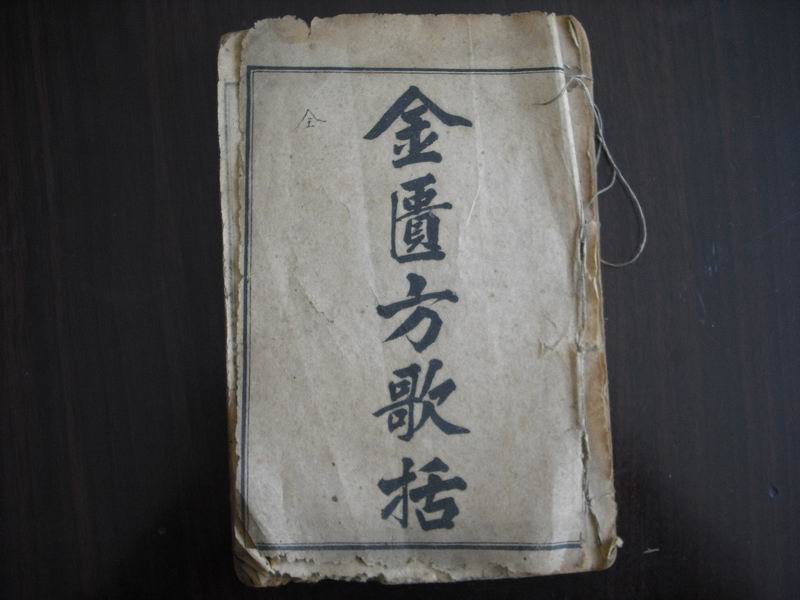 金匱方歌括
全